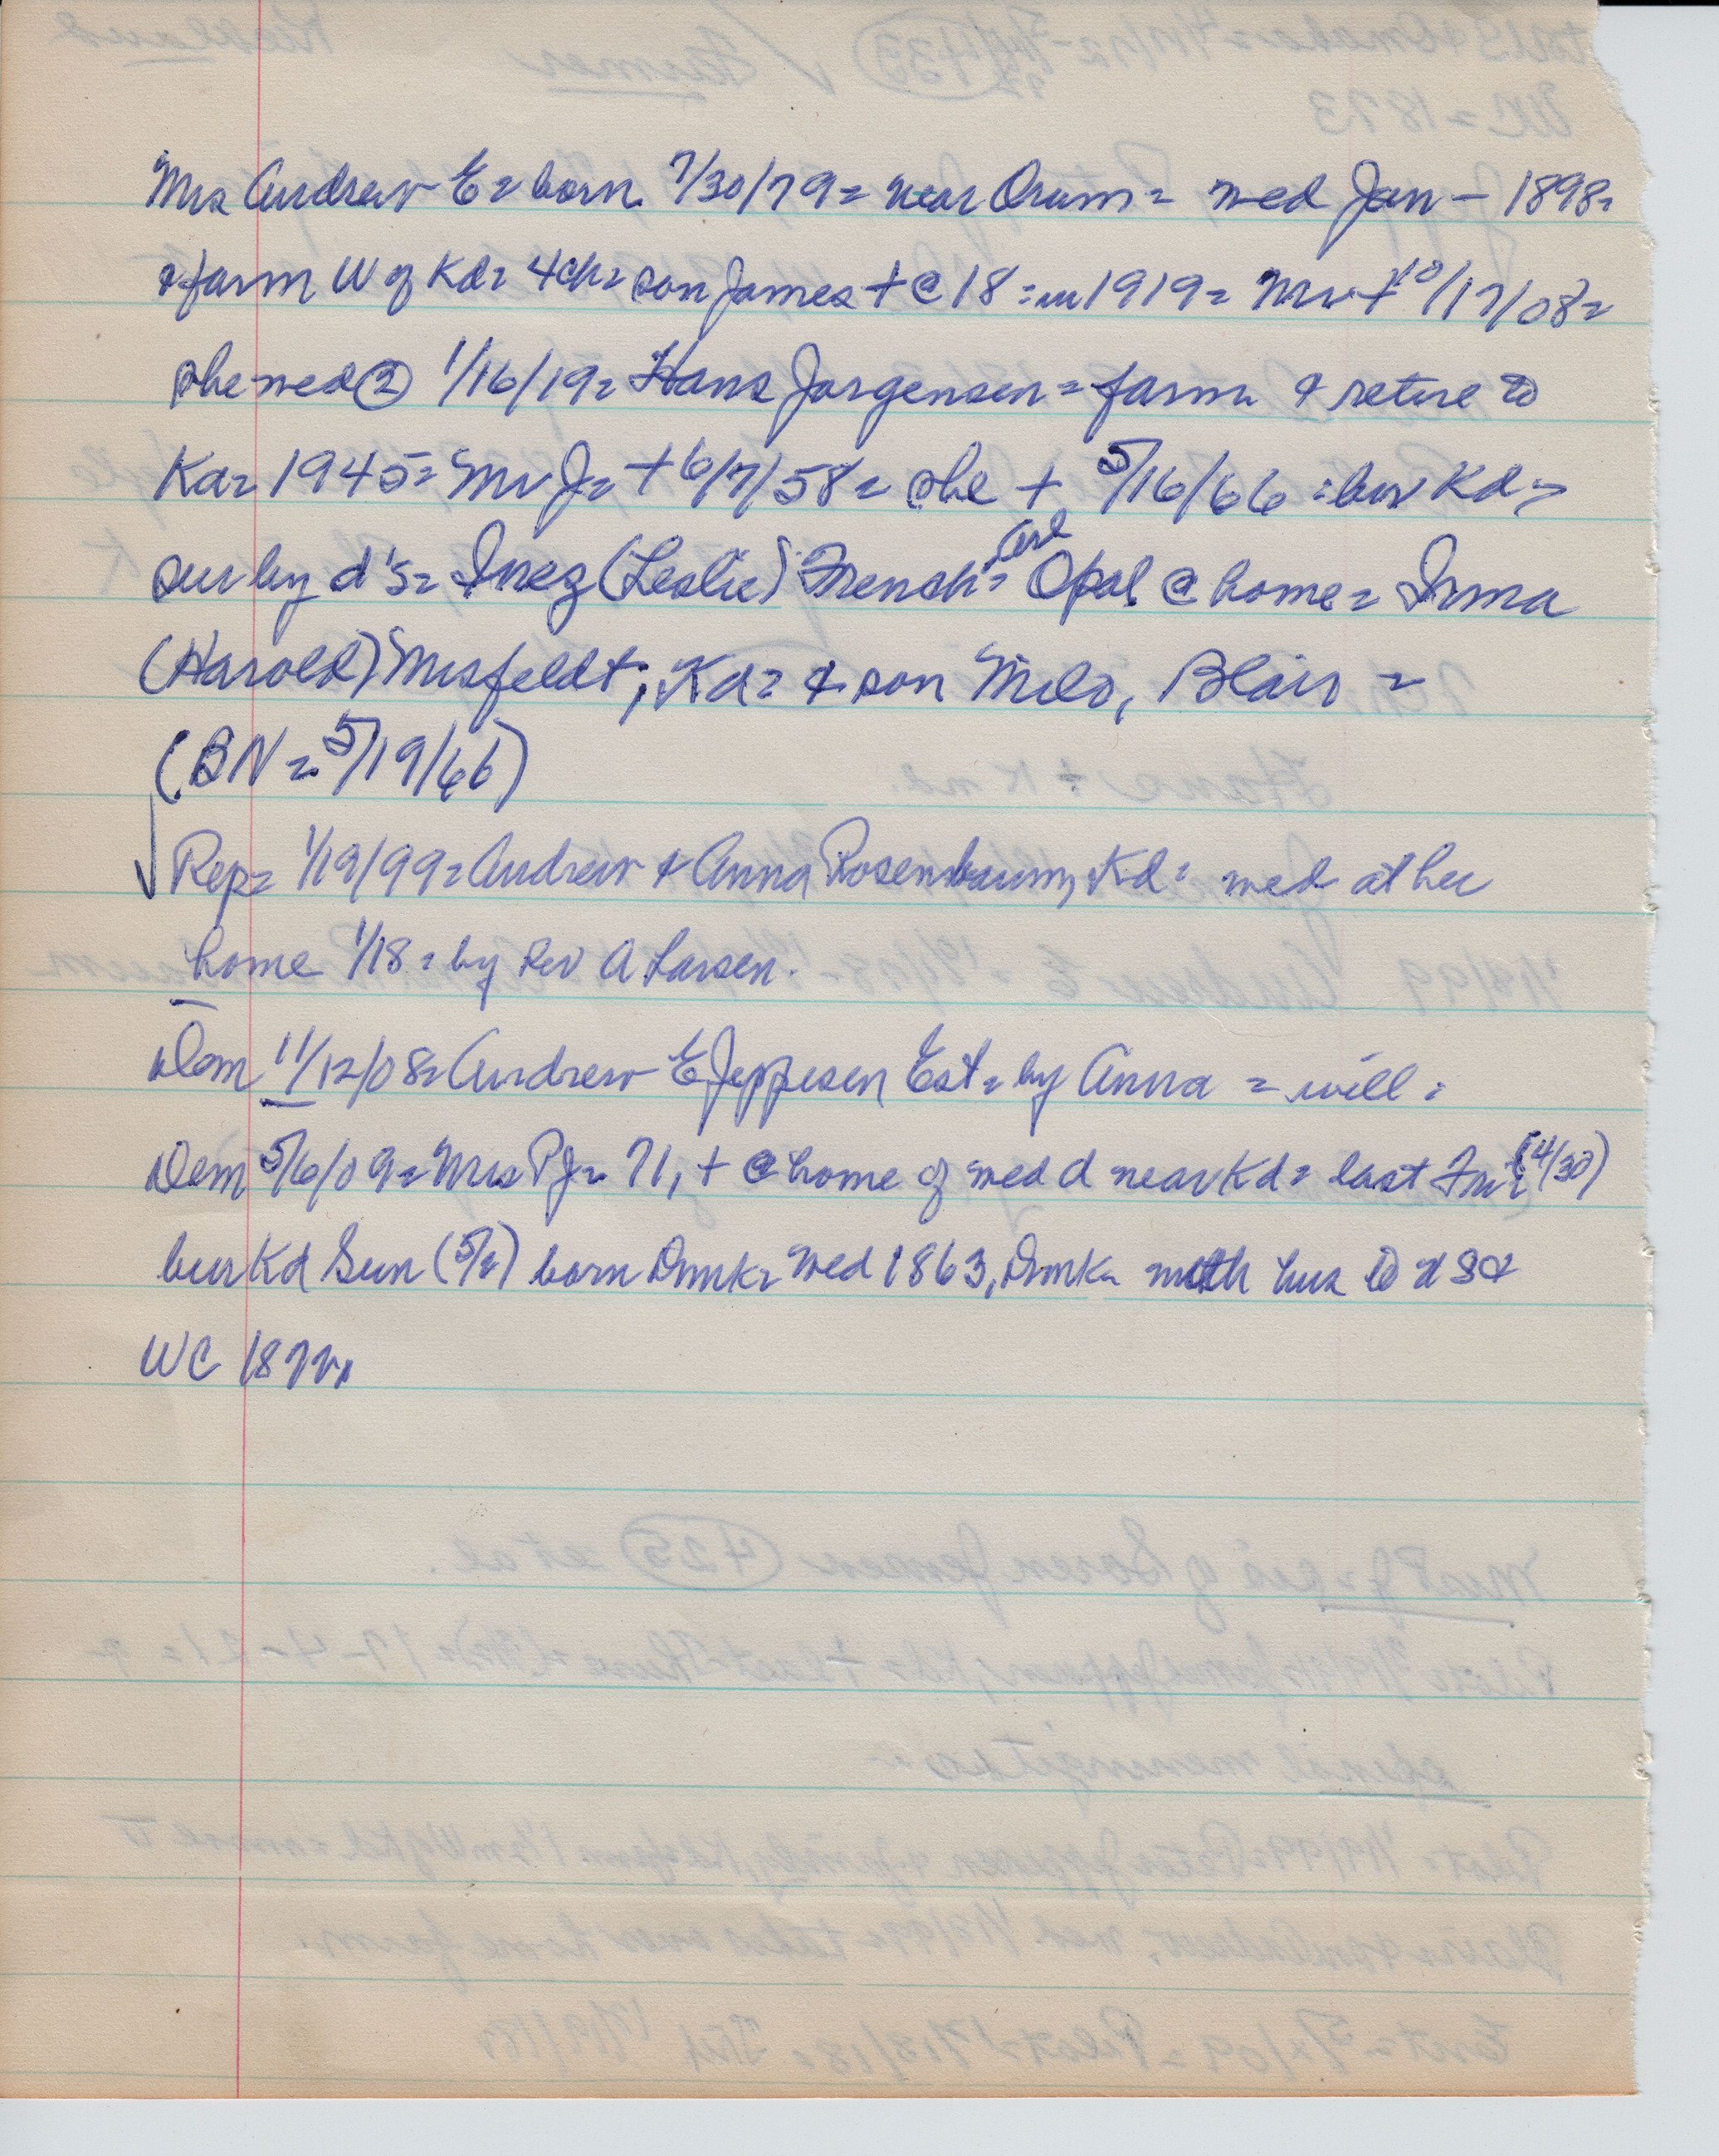 Mrs Andrew E = born 7/30/79 = near Orum = wed Jan - 1898 =
& farm W of Kd = 4 ch = son James + @ 18 = in 1919 = Mr + 10/17/08 =
she wed ② 1/16/19 = Hans Jorgensen = farm & retire to
Kd = 1945 = Mr J = + 6/7/58 = she + 5/16/66 = bur Kd =
sur by d's = Inez (Leslie) French = Opal @ home = Irma
(Harold) Misfeldt, Kd = & son Milo, Blair =
(BN = 5/19/66)
Rep = 1/19/99 = Andrew & Anna Rosenbaum, Kd = wed at her
home 1/18 = by Rev A Larsen.
Dem 11/12/08 = Andrew E Jeppesen Est = by Anna = will =
Dem 5/6/09 = Mrs P J = 71, + @ home of wed d near Kd = last Fri (4/30)
bur Kd Sun (5/2) born Dnmk = wed 1863, Dnmk = with hus to U S &
WC 1872.